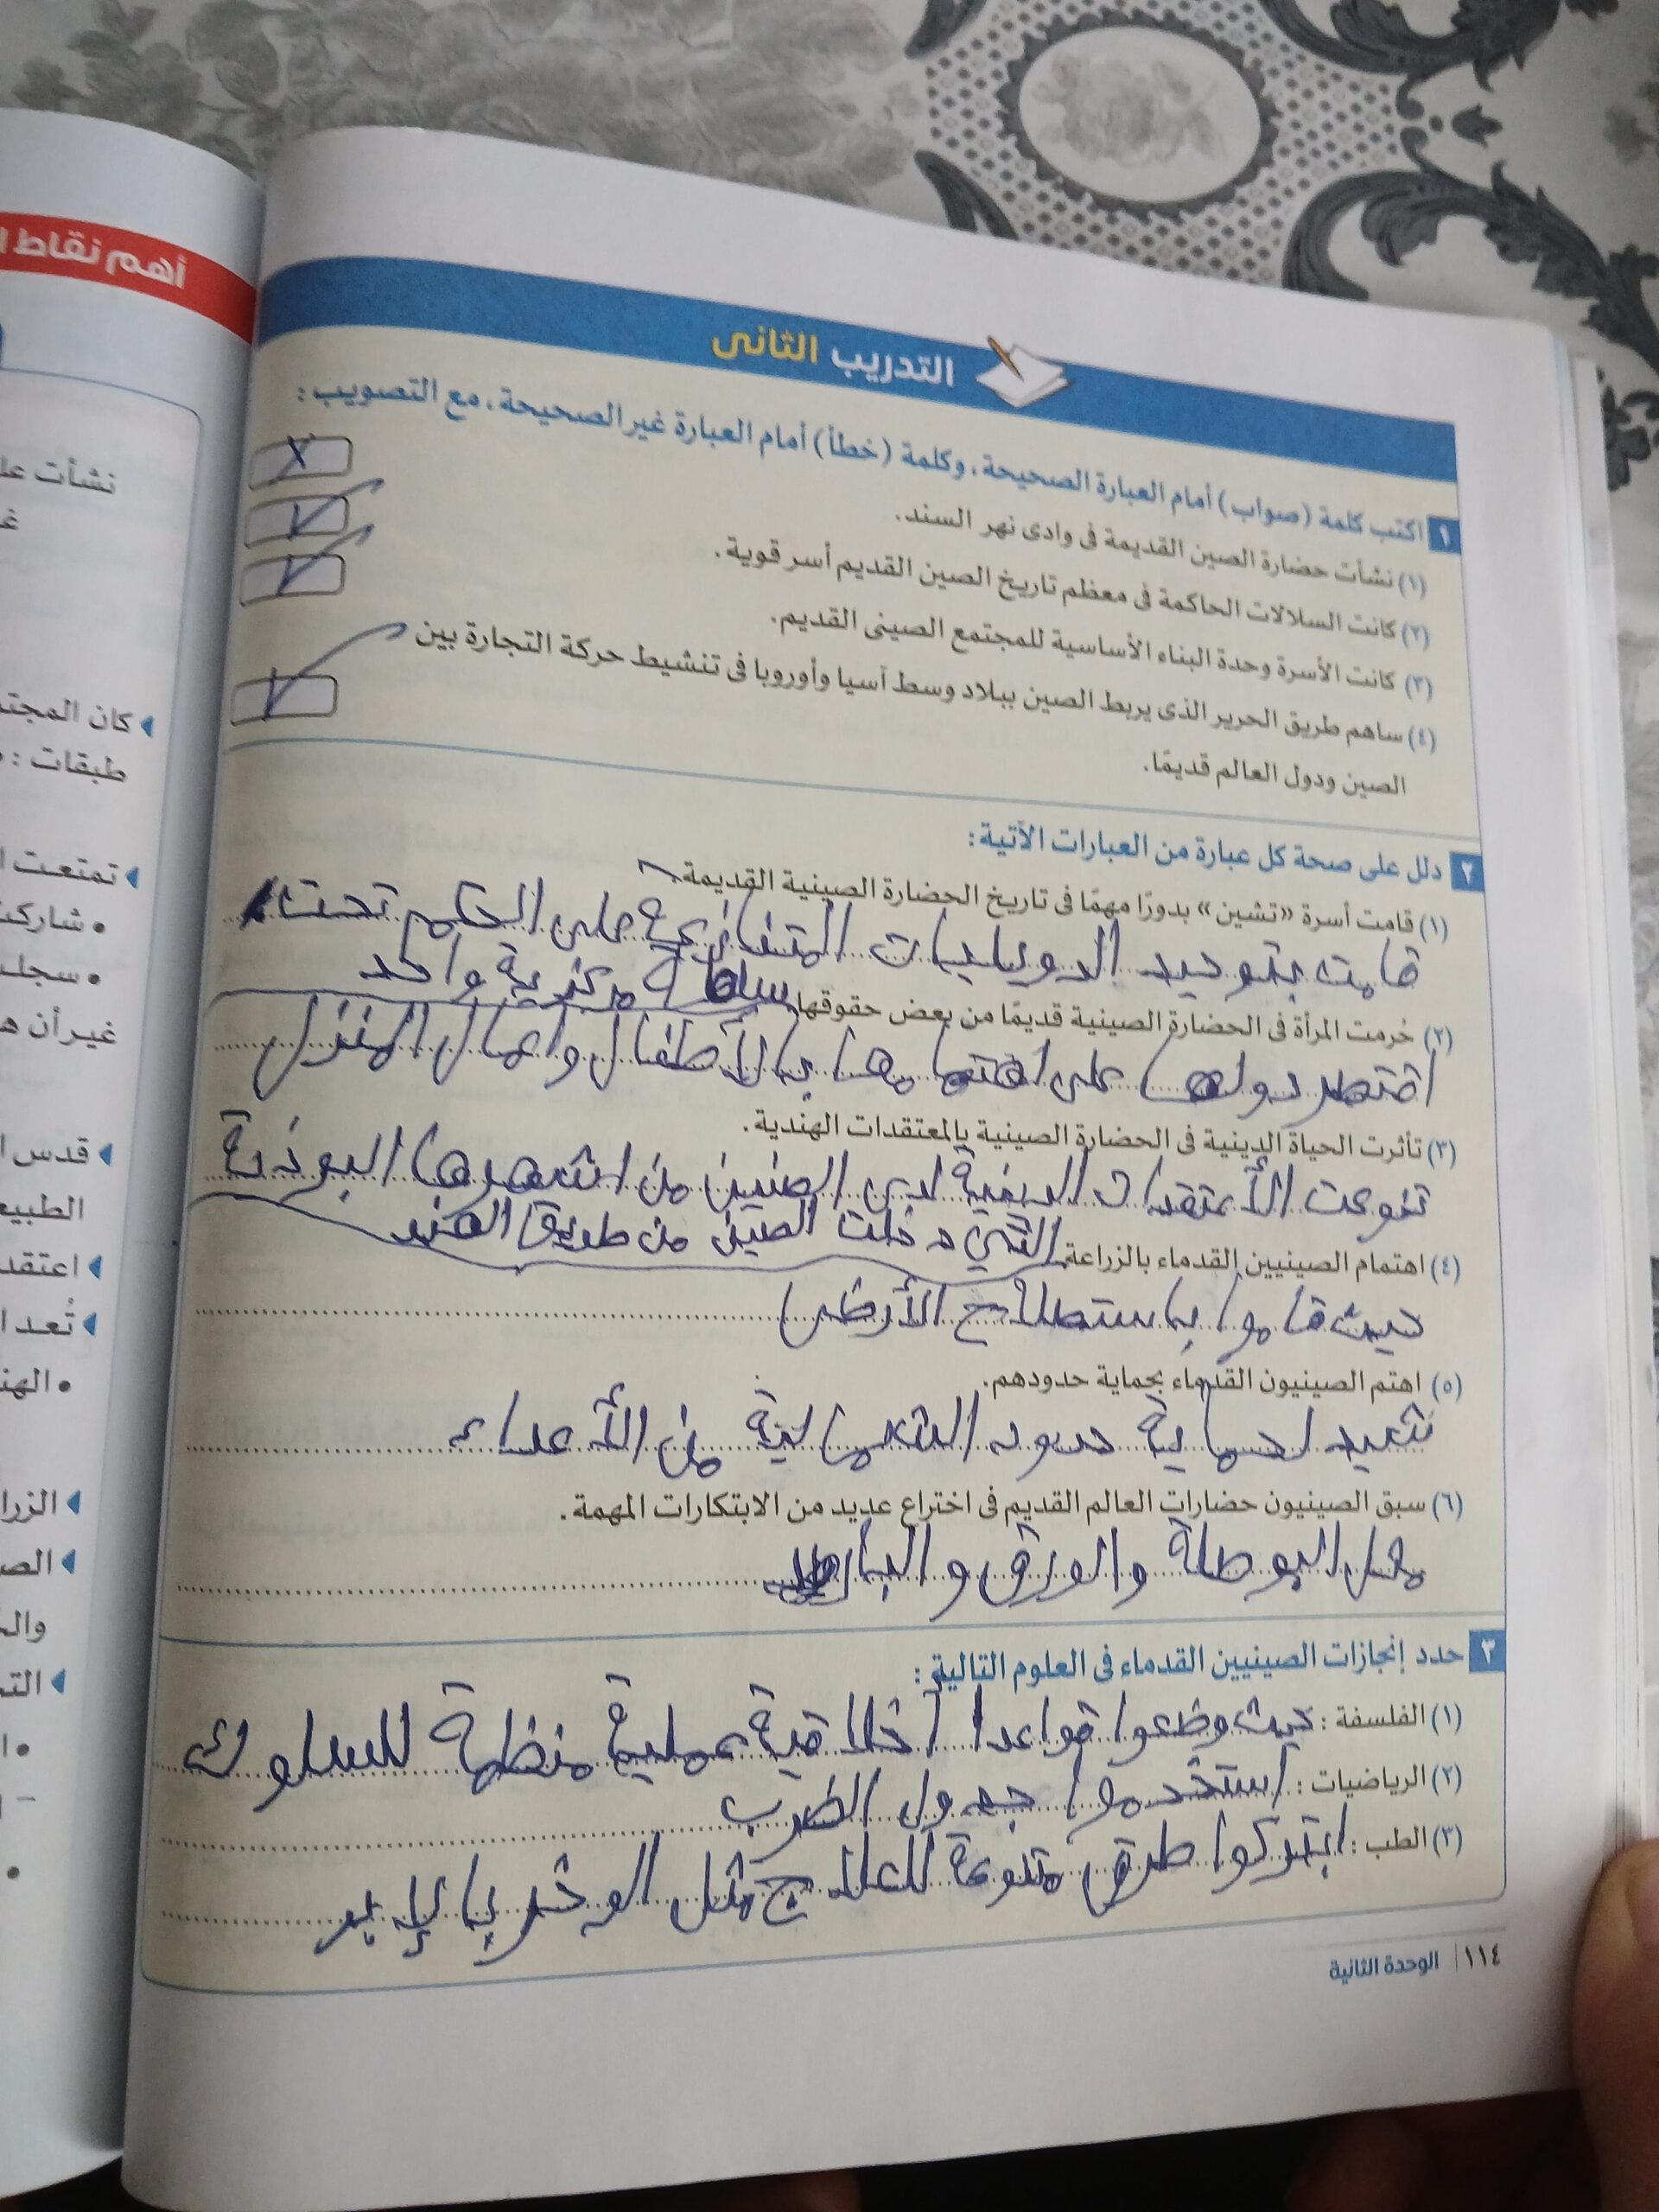 أهم نقاط ا
نشأت عل
كان المجتم
طبقات :
تمتعت ا
• شاركت
• سجل
غير أن ه
قدس ا
الطبيع
اعتقد
تُعد ا
• الهن
الزرا
الص
وال
الت
التدريب الثانى
١ اكتب كلمة (صواب) أمام العبارة الصحيحة، وكلمة (خطأ) أمام العبارة غير الصحيحة، مع التصويب :
(١) نشأت حضارة الصين القديمة فى وادى نهر السند. X
(٢) كانت السلالات الحاكمة فى معظم تاريخ الصين القديم أسر قوية. ✓
(٣) كانت الأسرة وحدة البناء الأساسية للمجتمع الصينى القديم. ✓
(٤) ساهم طريق الحرير الذى يربط الصين ببلاد وسط آسيا وأوروبا فى تنشيط حركة التجارة بين
الصين ودول العالم قديمًا. ✓
٢ دلل على صحة كل عبارة من العبارات الآتية :
(١) قامت أسرة «تشين» بدورًا مهمًا فى تاريخ الحضارة الصينية القديمة.
قامت بتوحيد الدويليات المتنازعة على الحكم تحت
سلطة مركزية واحد
(٢) حُرمت المرأة فى الحضارة الصينية قديمًا من بعض حقوقها.
اقتصر دولها على اهتمامها بالأطفال واعمال المنزل
(٣) تأثرت الحياة الدينية فى الحضارة الصينية بالمعتقدات الهندية.
تنوعت الأعتقدات الدينية لدى الصنين من اشهرها البوذية
التي دخلت الصين من طريق الهند
(٤) اهتمام الصينيين القدماء بالزراعة.
حيث قاموا باستصلاح الأرض
(٥) اهتم الصينيون القدماء بحماية حدودهم.
لحماية حدود الشمالية من الأعداء
(٦) سبق الصينيون حضارات العالم القديم فى اختراع عديد من الابتكارات المهمة.
مثل البوصلة والورق و
٣ حدد إنجازات الصينيين القدماء فى العلوم التالية :
(١) الفلسفة : حيث وضعوا قواعدا أخلاقية عملية منظمة للسلوك
(٢) الرياضيات : استخدموا جدول الضرب
(٣) الطب : ابتركوا طرق متنوعة للعلاج مثل الوخز بالإبر
١١٤ | الوحدة الثانية